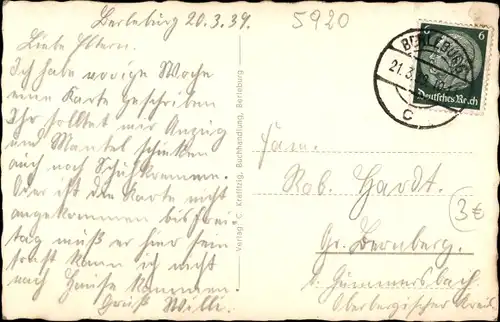 Berleburg 20.3.39.
5920
Liebe Eltern.
Ich habe vorige Woche
eine Karte geschrieben
Ihr solltet mir Anzug
und Mantel schicken
auch noch Schuhkremme.
Oder ist die Karte nicht
angekommen bis Frei-
tag muß er hier sein
sonst kann ich nicht
nach Hause kommen.
Gruß Willi.
Verlag: C. Krefftzig, Buchhandlung, Berleburg
6
Deutsches Reich
BERLEBURG
21.3.39
c
Fam.
Rob. Hardt.
Gr. Bernberg.
b. Gummersbach.
Oberbergischer Kreis
3€